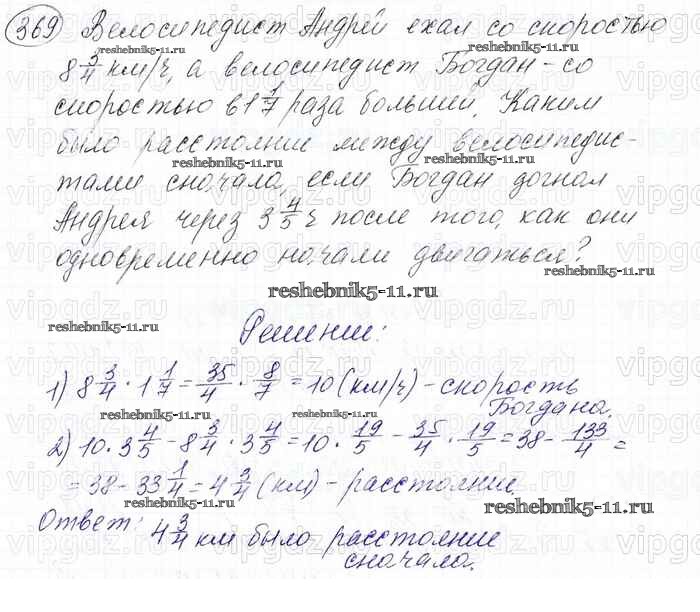 369 Велосипедист Андрей ехал со скоростью
8 3/4 км/ч, а велосипедист Богдан - со
скоростью в 1 1/7 раза большей. Каким
было расстояние между велосипедис-
тами сначала, если Богдан догнал
Андрея через 3 4/5 ч после того, как они
одновременно начали двигаться?
reshebnik5-11.ru
Решение:
1) 8 3/4 · 1 1/7 = 35/4 · 8/7 = 10 (км/ч) - скорость
Богдана.
2) 10 · 3 4/5 - 8 3/4 · 3 4/5 = 10 · 19/5 - 35/4 · 19/5 = 38 - 133/4 =
= 38 - 33 1/4 = 4 3/4 (км) - расстояние.
Ответ: 4 3/4 км было расстояние
сначала.